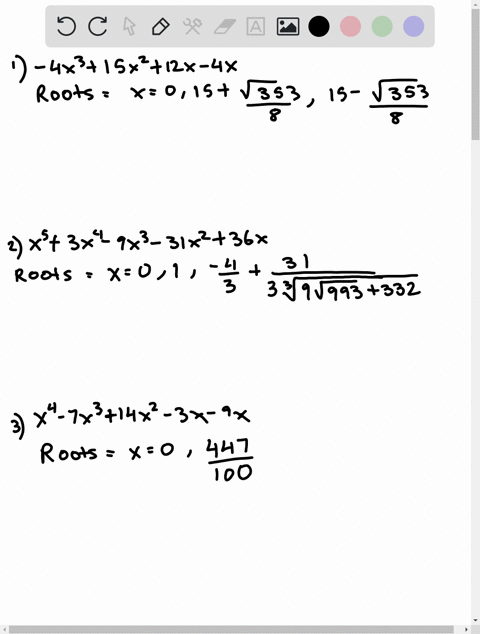 1) -4x³+15x²+12x-4x
Roots = x=0, 15+ √353/8, 15- √353/8
2) x⁵+3x⁴-9x³-31x²+36x
Roots = x=0, 1, -4/3 + 31/(3∛(9√993+332))
3) x⁴-7x³+14x²-3x-9x
Roots = x=0, 447/100